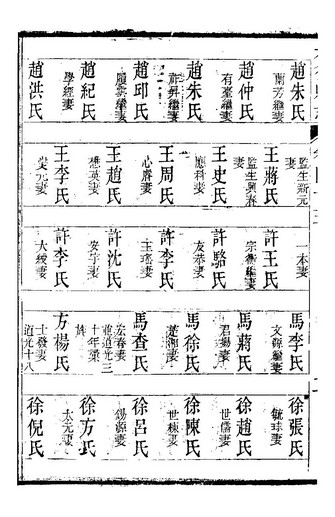 趙朱氏
蘭芳繼妻
趙仲氏
有臺妻
趙朱氏
昇繼妻
趙邱氏
繼妻
趙紀氏
學經妻
趙洪氏
監生新元
妻
王蔣氏
監生興春
妻
王史氏
應科妻
王周氏
心齋妻
王趙氏
懋英妻
王李氏
榮元妻
一本妻
許王氏
宗衡繼妻
許駱氏
友恭妻
許李氏
妻
許沈氏
安宇妻
許李氏
大綬妻
馬李氏
文錦繼妻
馬蔣氏
君揚妻
馬徐氏
楚湘妻
馬查氏
宏春妻
道光三
十年彙
旌
方楊氏
士發妻
道光十八
徐張氏
毓球妻
徐趙氏
世儒妻
徐陳氏
世棟妻
徐呂氏
錫源妻
徐方氏
太元妻
徐倪氏